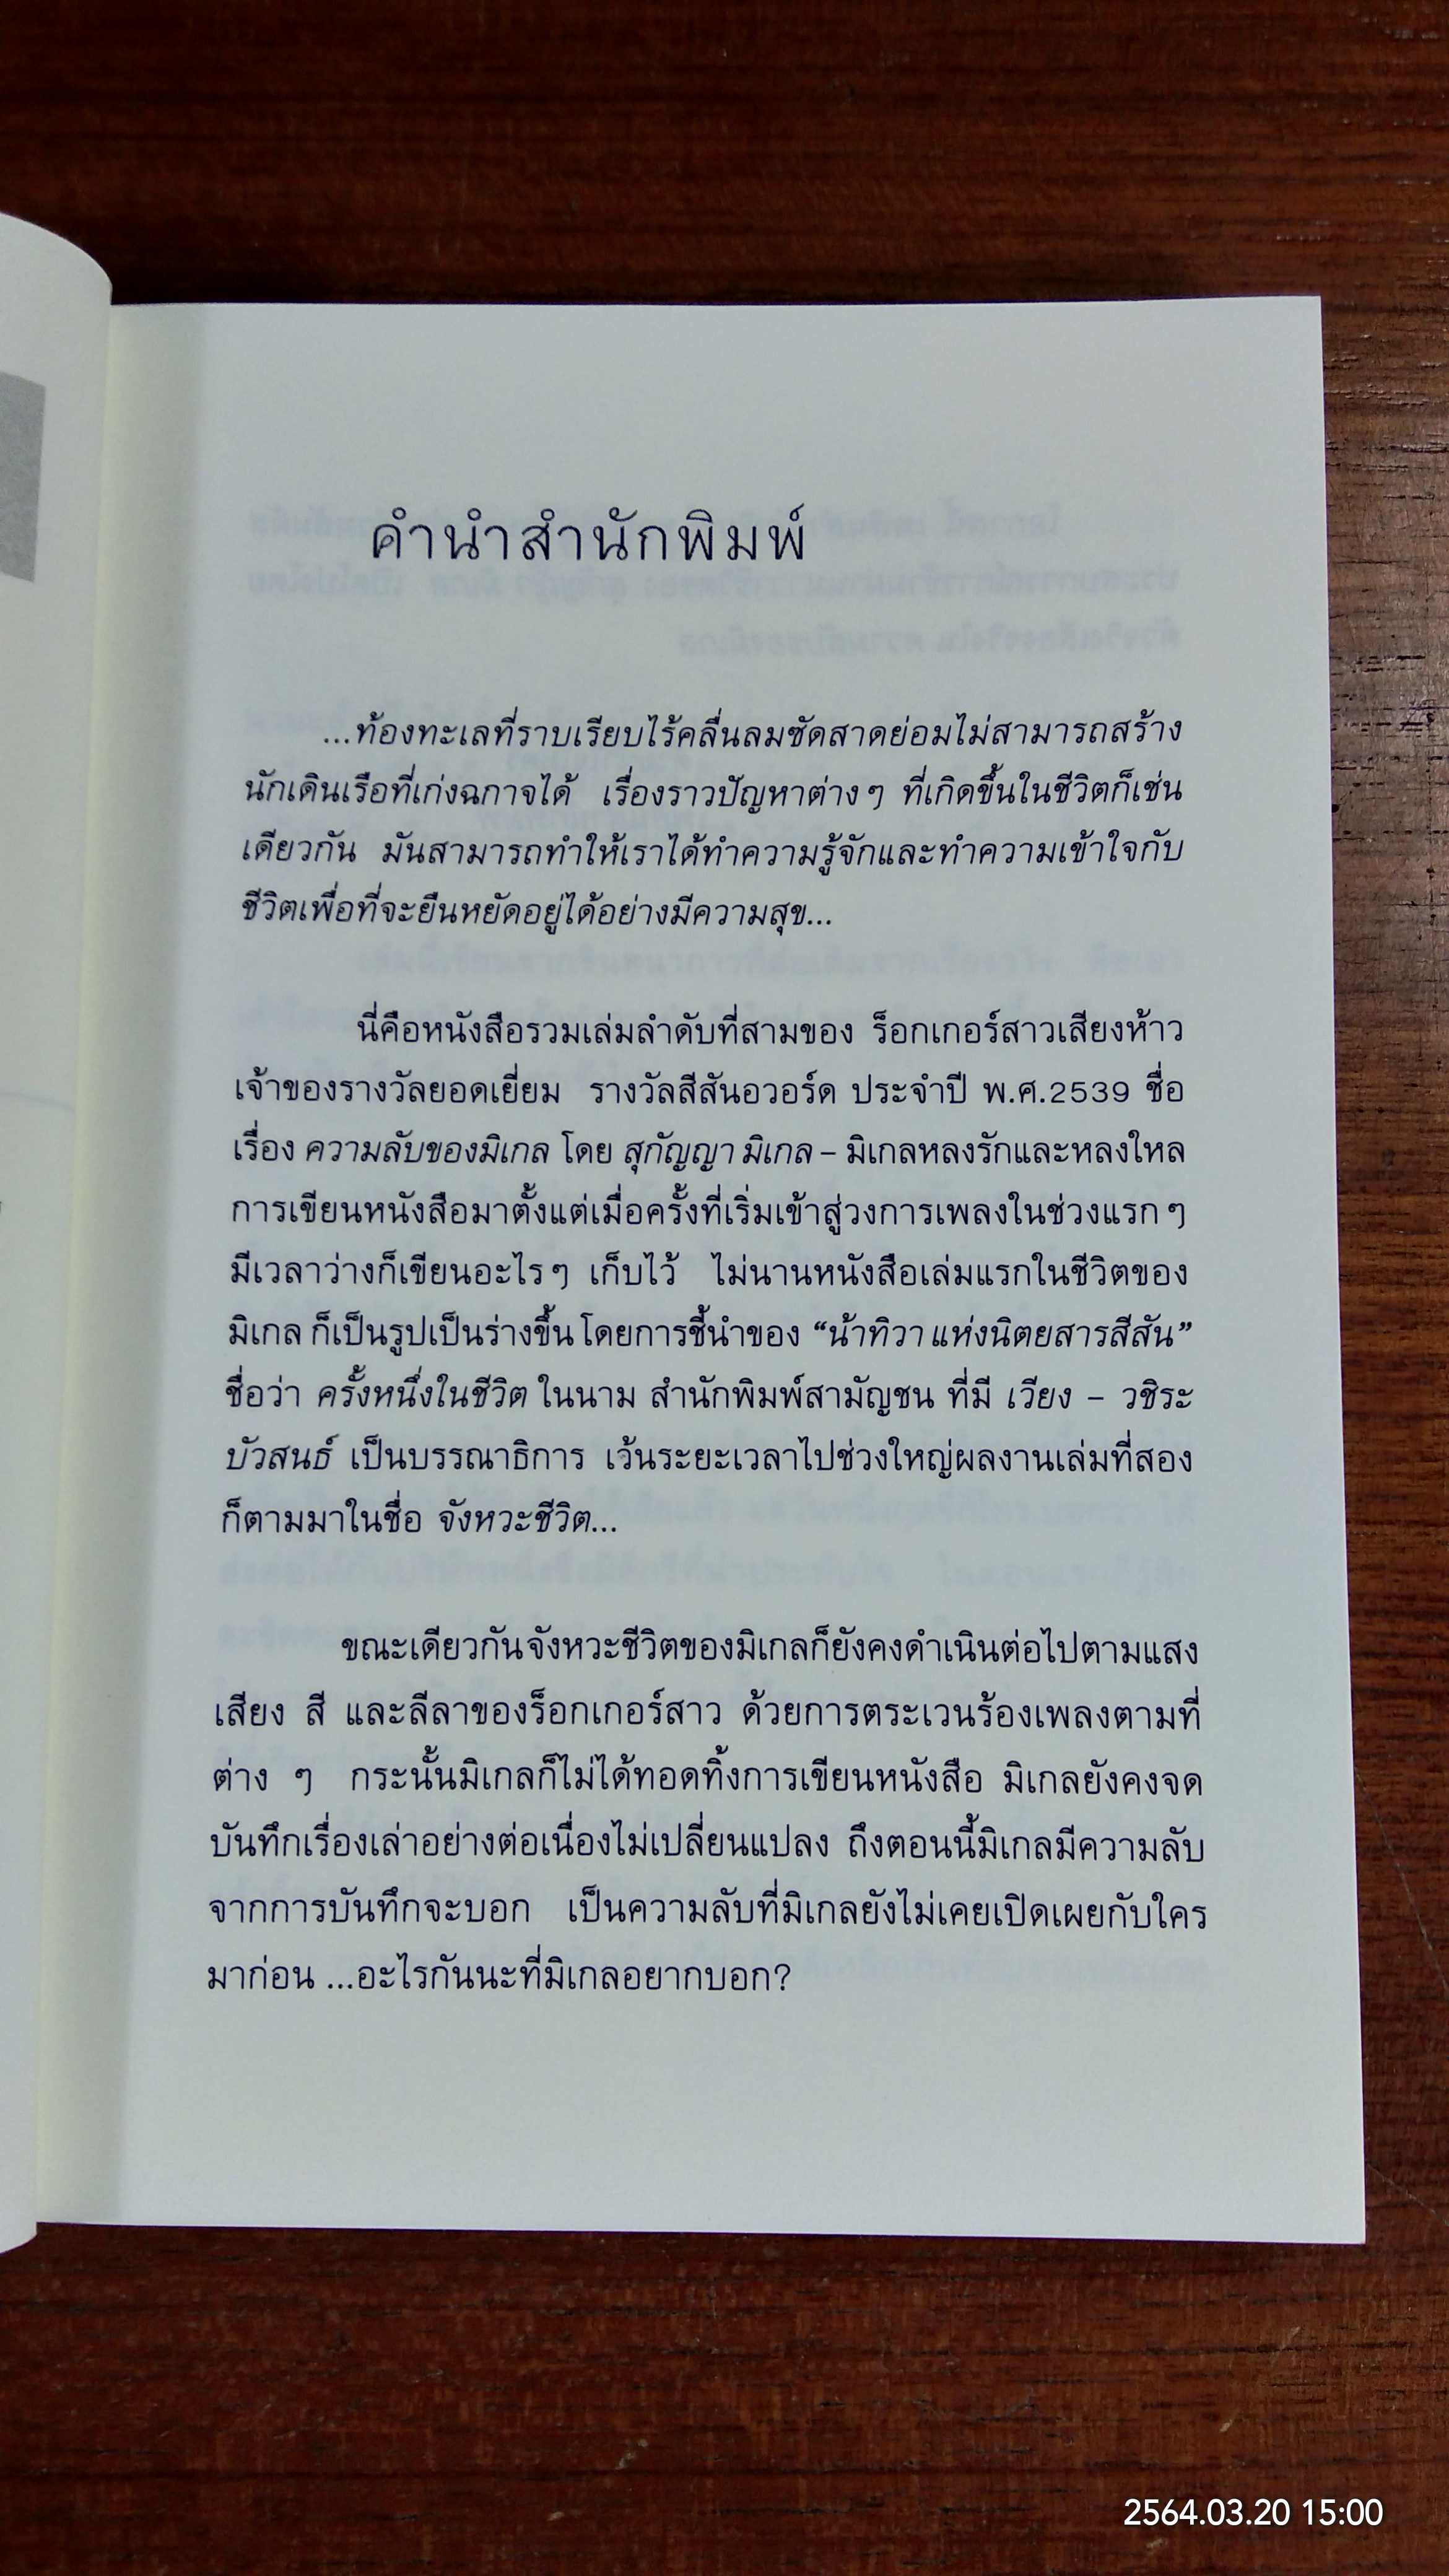 คำนำสำนักพิมพ์
...ท้องทะเลที่ราบเรียบไร้คลื่นลมซัดสาดย่อมไม่สามารถสร้าง
นักเดินเรือที่เก่งฉกาจได้ เรื่องราวปัญหาต่างๆ ที่เกิดขึ้นในชีวิตก็เช่น
เดียวกัน มันสามารถทำให้เราได้ทำความรู้จักและทำความเข้าใจกับ
ชีวิตเพื่อที่จะยืนหยัดอยู่ได้อย่างมีความสุข...
นี่คือหนังสือรวมเล่มลำดับที่สามของ ร็อกเกอร์สาวเสียงห้าว
เจ้าของรางวัลยอดเยี่ยม รางวัลสีสันอวอร์ด ประจำปี พ.ศ.2539 ชื่อ
เรื่อง ความลับของมิเกล โดย สุกัญญา มิเกล – มิเกลหลงรักและหลงใหล
การเขียนหนังสือมาตั้งแต่เมื่อครั้งที่เริ่มเข้าสู่วงการเพลงในช่วงแรกๆ
มีเวลาว่างก็เขียนอะไรๆ เก็บไว้ ไม่นานหนังสือเล่มแรกในชีวิตของ
มิเกล ก็เป็นรูปเป็นร่างขึ้น โดยการชี้นำของ “น้าทิวา แห่งนิตยสารสีสัน”
ชื่อว่า ครั้งหนึ่งในชีวิต ในนาม สำนักพิมพ์สามัญชน ที่มี เวียง – วชิระ
บัวสนธ์ เป็นบรรณาธิการ เว้นระยะเวลาไปช่วงใหญ่ผลงานเล่มที่สอง
ก็ตามมาในชื่อ จังหวะชีวิต...
ขณะเดียวกันจังหวะชีวิตของมิเกลก็ยังคงดำเนินต่อไปตามแสง
เสียง สี และลีลาของร็อกเกอร์สาว ด้วยการตระเวนร้องเพลงตามที่
ต่าง ๆ กระนั้นมิเกลก็ไม่ได้ทอดทิ้งการเขียนหนังสือ มิเกลยังคงจด
บันทึกเรื่องเล่าอย่างต่อเนื่องไม่เปลี่ยนแปลง ถึงตอนนี้มิเกลมีความลับ
จากการบันทึกจะบอก เป็นความลับที่มิเกลยังไม่เคยเปิดเผยกับใคร
มาก่อน ...อะไรกันนะที่มิเกลอยากบอก?
2564.03.20 15:00